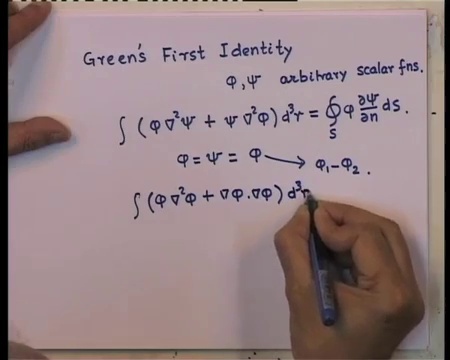 Green's First Identity
φ, ψ arbitrary scalar fns.
∫ (φ ∇²ψ + ψ ∇²φ) d³r = ∮_S φ ∂ψ/∂n dS.
φ = ψ = φ → φ₁ - φ₂.
∫ (φ ∇²φ + ∇φ . ∇φ) d³r